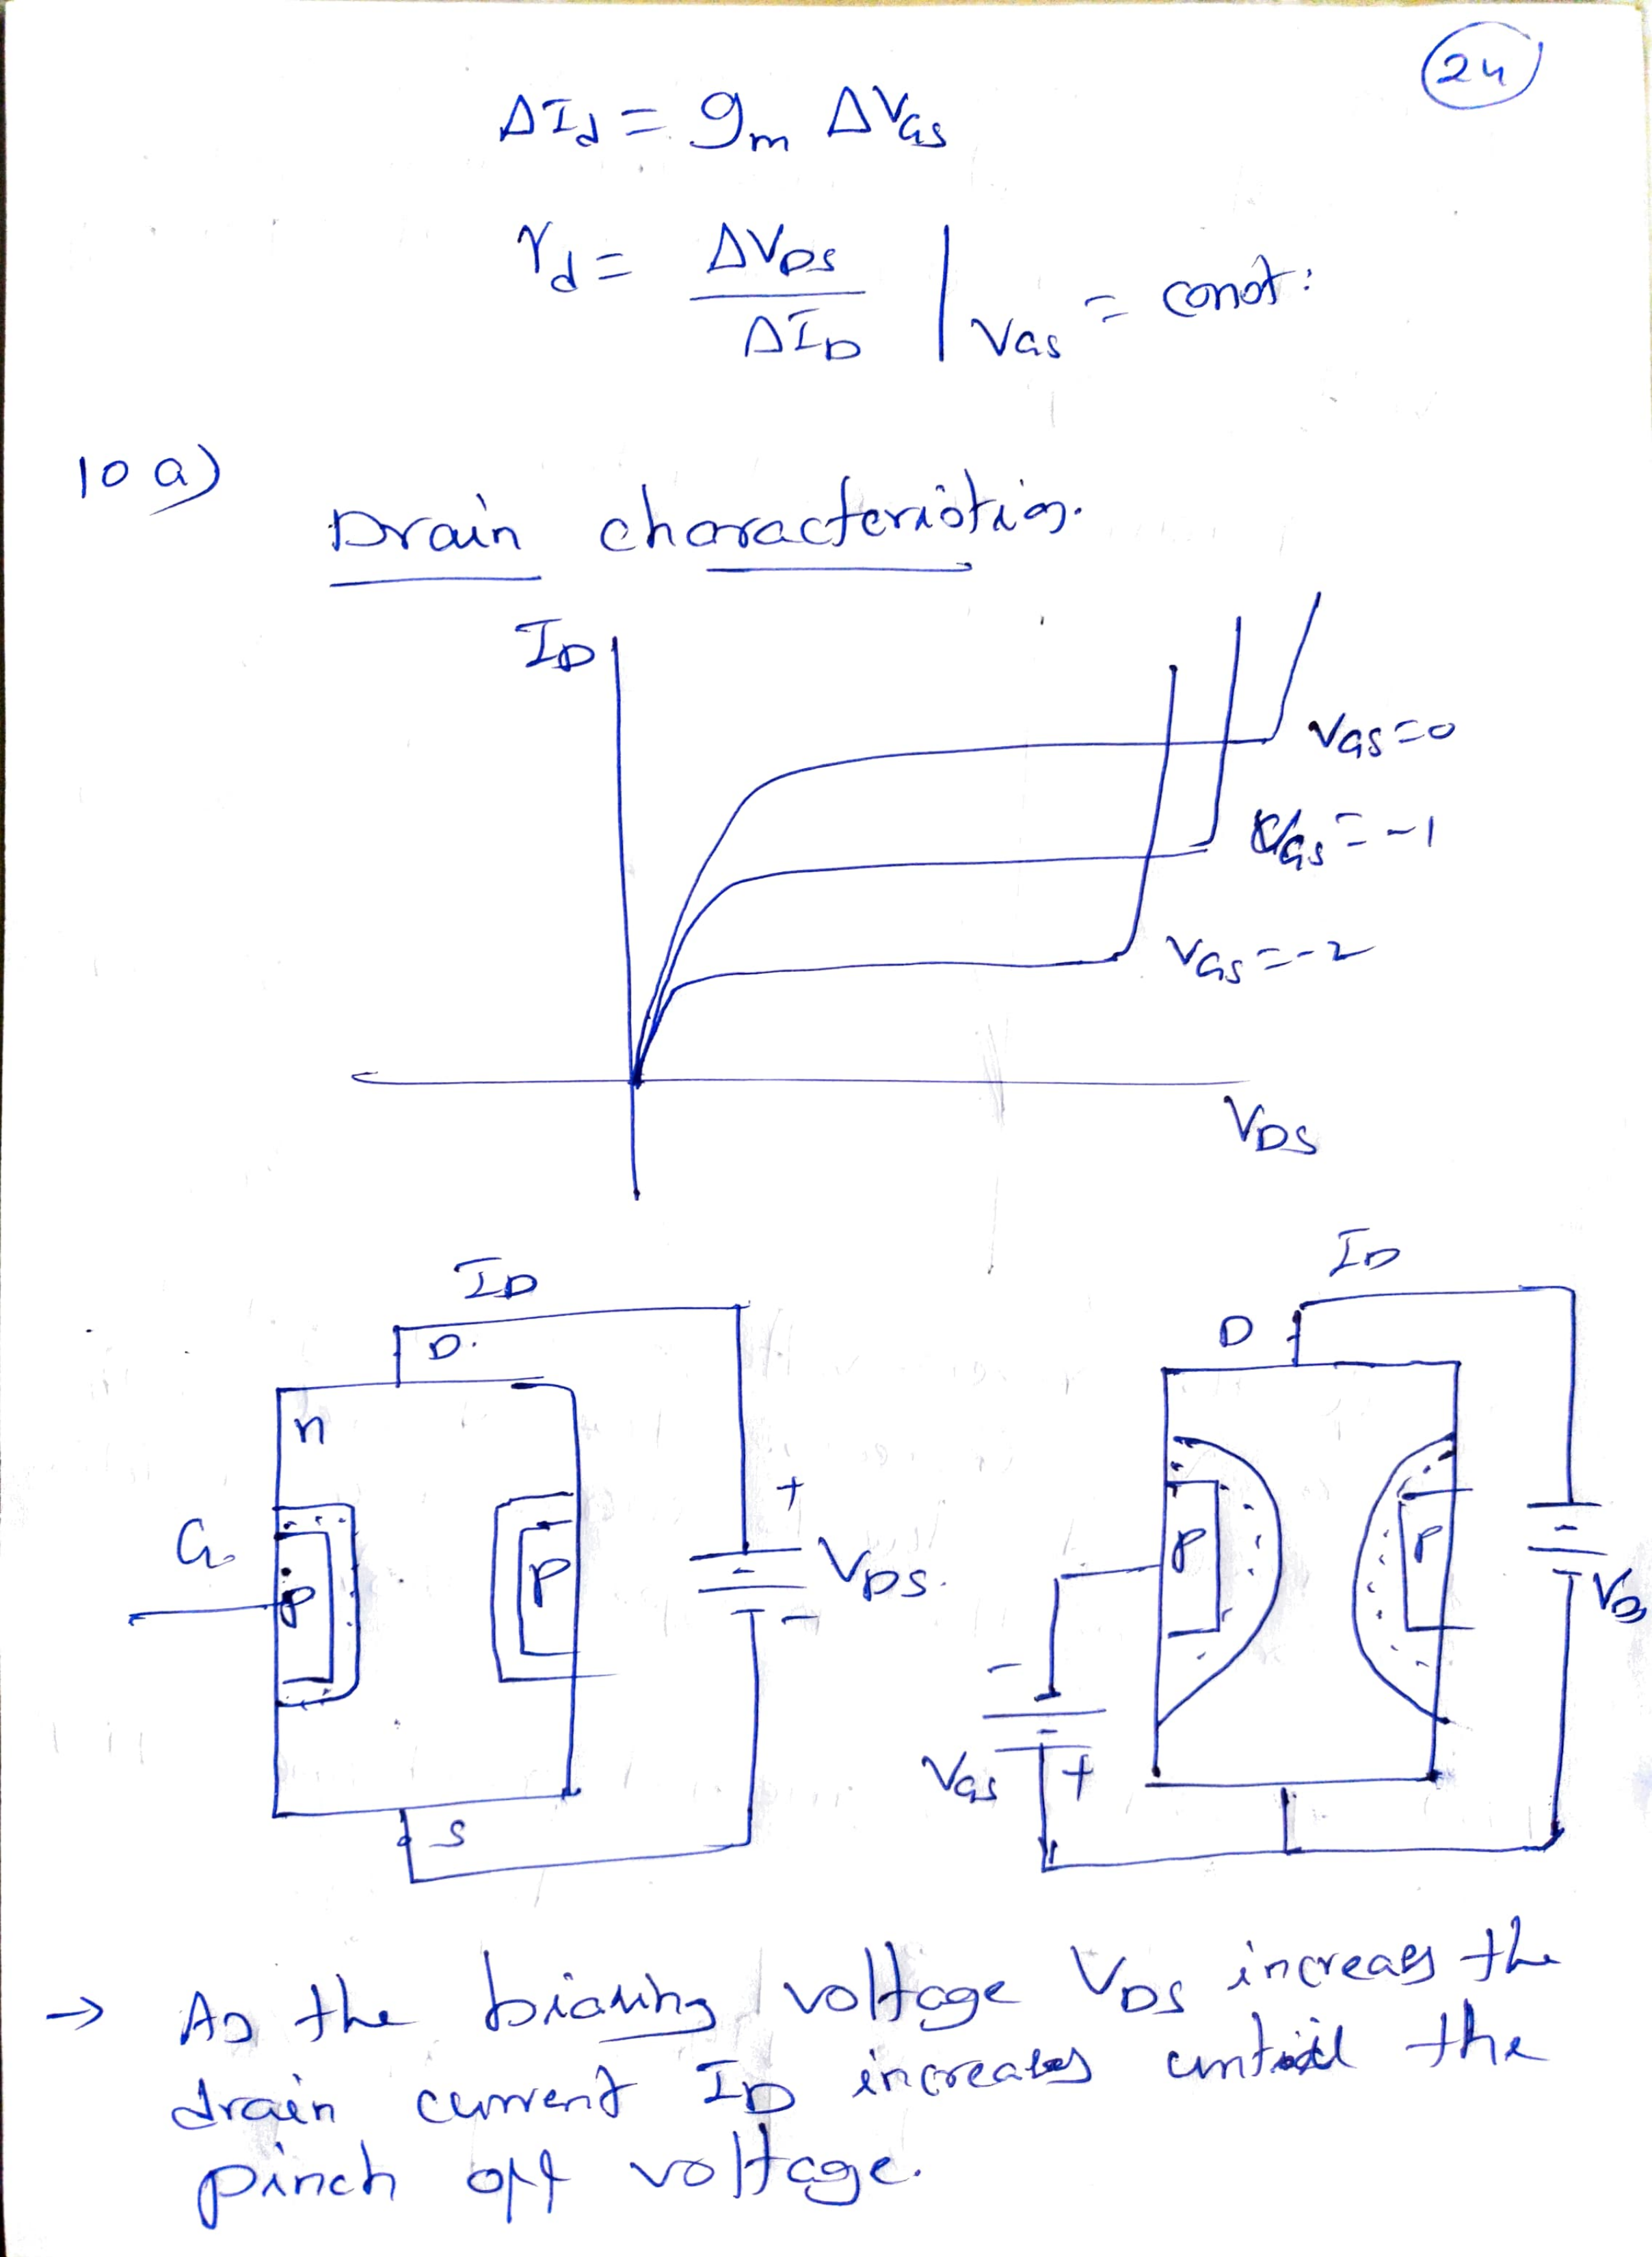 24
ΔId = gm ΔVGS
rd = ΔVDS / ΔID | VGS = const:
10 a)
Drain characteristics.
ID
VGS=0
VGS=-1
VGS=-2
VDS
ID
ID
D.
D
n
G
P
P
+
VDS.
-
P
P
VD
-
VGS
+
S
→ As the biasing voltage VDS increases the
drain current ID increases until the
pinch off voltage.